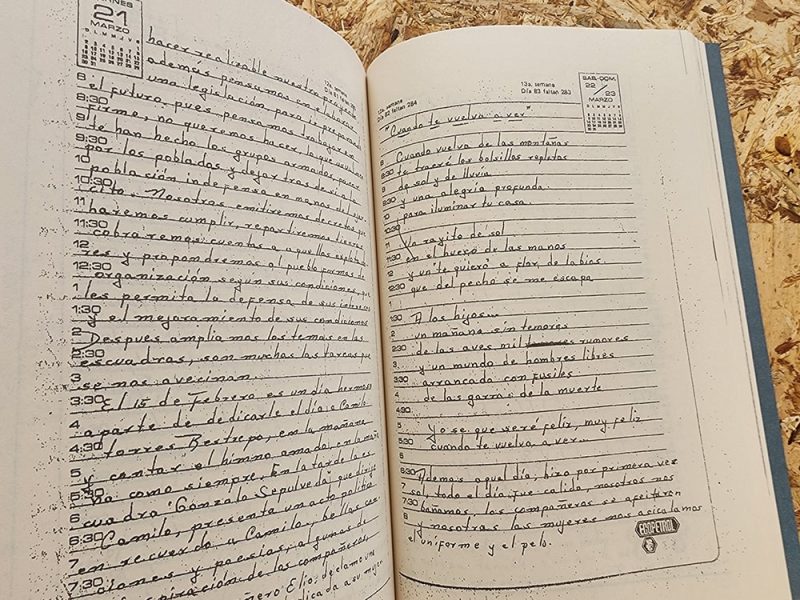 VIERNES
21
MARZO
D L M M J V S
13a, semana
hacer realizable nuestro proyec
además pensamos en elaborar
una legislación para ir preparando
8 el futuro, pues pensamos trabajar en
8:30 firme, no queremos hacer lo que usualmen
9 te han hecho los grupos armados, pasar
9:30 por los poblados y dejar tras de sí la
10 población indefensa en manos del ejer
10:30 cito. Nosotros emitiremos decretos que
11 haremos cumplir, repartiremos tierras,
11:30 cobraremos cuentas a aquellos explotado
12 res y propondremos al pueblo formas de
12:30 organización según sus condiciones, que
1 les permita la defensa de sus intereses
1:30 y el mejoramiento de sus condiciones
2 Despues ampliamos los temas en las
2:30 escuadras, son muchas las tareas que
3 se nos avecinan.
3:30 El 15 de Febrero es un día hermoso
4 aparte de dedicarle el día a Camilo
4:30 torres Restrepo, en la mañana
5 y cantar el himno amado, en la maña
5:30 na como siempre. En la tarde la es
6 cuadra "Gonzalo Sepulveda" que dirije
6:30 Camilo, presenta un acto político
7 en recuerdo a Camilo, bellas can
7:30 ciones y poesías, algunas de
inspiración de los compañeros,
Elio, declamo una
dedicada a su mujer
12a, semana
Día 82 faltan 284
13a, semana
Día 83 faltan 283
SAB.-DOM.
22/23
MARZO
D L M M J V S
"Cuando te vuelva a ver"
8 Cuando vuelva de las montañas
8:30 te traeré los bolsillos repletos
9 de sol y de lluvia
9:30 y una alegría profunda
10 para iluminar tu casa.
10:30
11 Un rayito de sol
11:30 en el hueco de las manos
12 y un "te quiero" a flor de labios.
12:30 que del pecho se me escapa
1:30 A los hijos...
2 un mañana sin temores
2:30 de las aves mil rumores
3 y un mundo de hombres libres
3:30 arrancada con fusiles
4 de las garras de la muerte
4:30
5 Yo se que seré feliz, muy feliz
5:30 cuando te vuelva a ver...
6
6:30 Ademas aquel día, hizo por primera vez
7 sol, todo el día, que calido, nosotros nos
7:30 bañamos, los compañeros se afeitaron
8 y nosotras las mujeres nos acicalamos
el uniforme y el pelo.
ECOPETROL